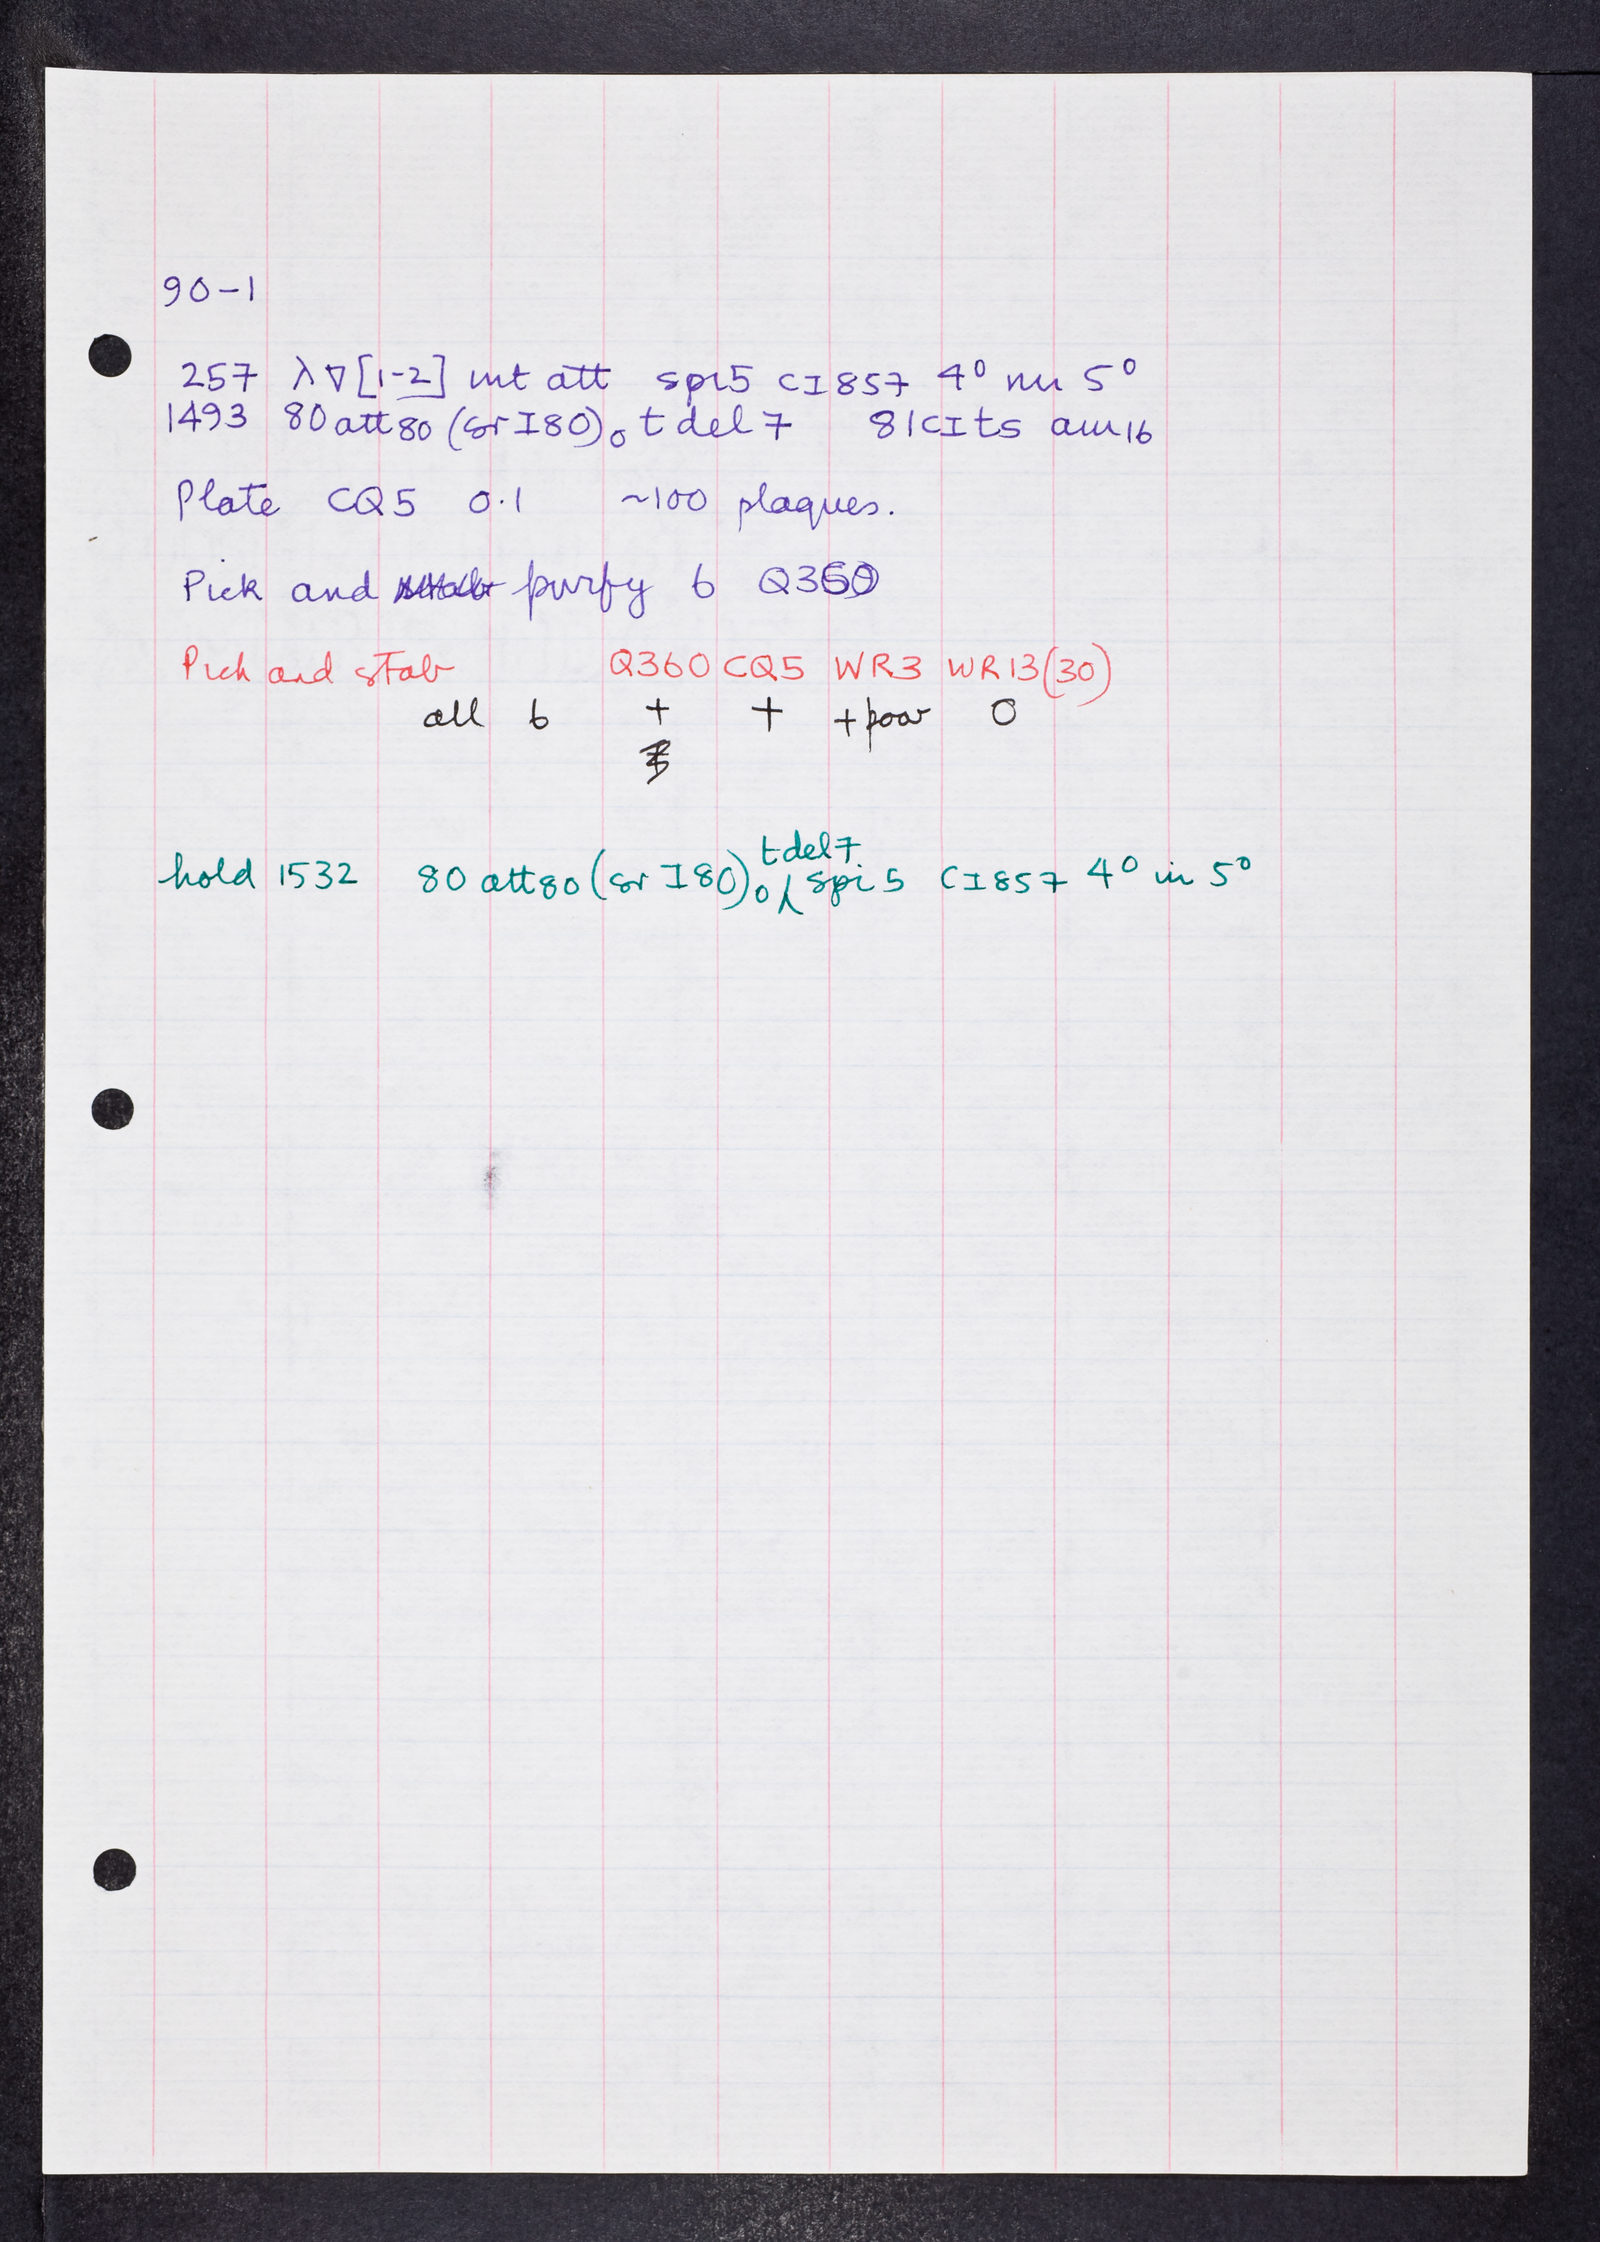 90-1
257 λ∇[1-2] int att spi5 CI857 4° nin 5°
1493 80att80 (sr I80)o t del 7 81CIts am16
Plate CQ5 0.1 ~100 plaques.
Pick and purfy 6 Q360
Pick and stab Q360 CQ5 WR3 WR13(30)
all 6 + + +poor O
tdel7
hold 1532 80 att80 (sr I80)o spi5 CI857 4° nin 5°